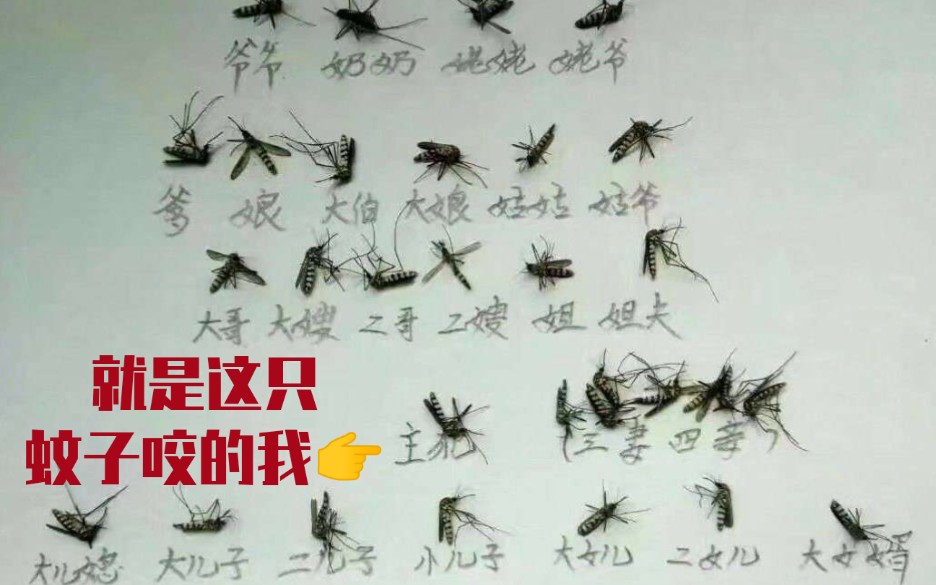 爷爷 奶奶 姥姥 姥爷
爹 娘 大伯 大娘 姑姑 姑爷
大哥 大嫂 二哥 二嫂 姐 姐夫
就是这只
蚊子咬的我👉
主犯 (三妻四妾)
大儿媳 大儿子 二儿子 小儿子 大女儿 二女儿 大女婿